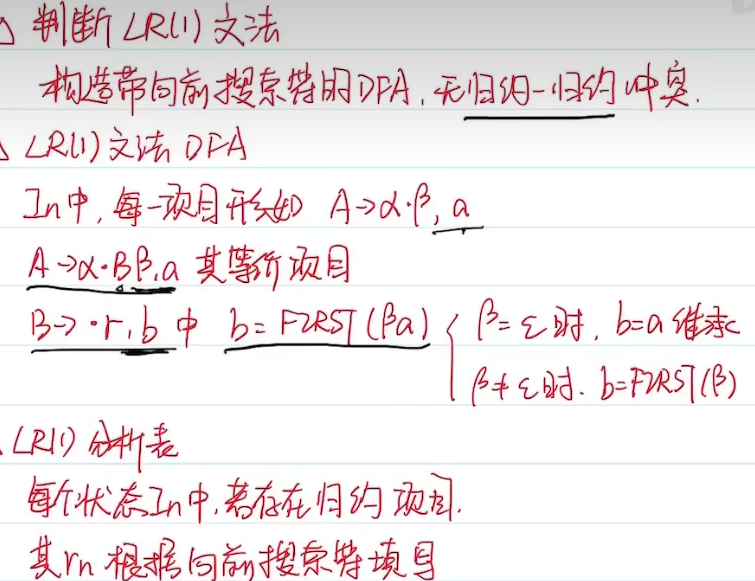 △ 判断 LR(1) 文法
构造带向前搜索符的DFA,无归约-归约冲突.
△ LR(1)文法 DFA
In中,每一项目形如 A→α·β, a
A→α·Bβ,a 其等价项目
B→·r,b 中 b=FIRST(βa) { β=ε时, b=a 继承
β≠ε时. b=FIRST(β)
LR(1) 分析表
每个状态In中,若存在归约项目.
其rn 根据向前搜索符填写